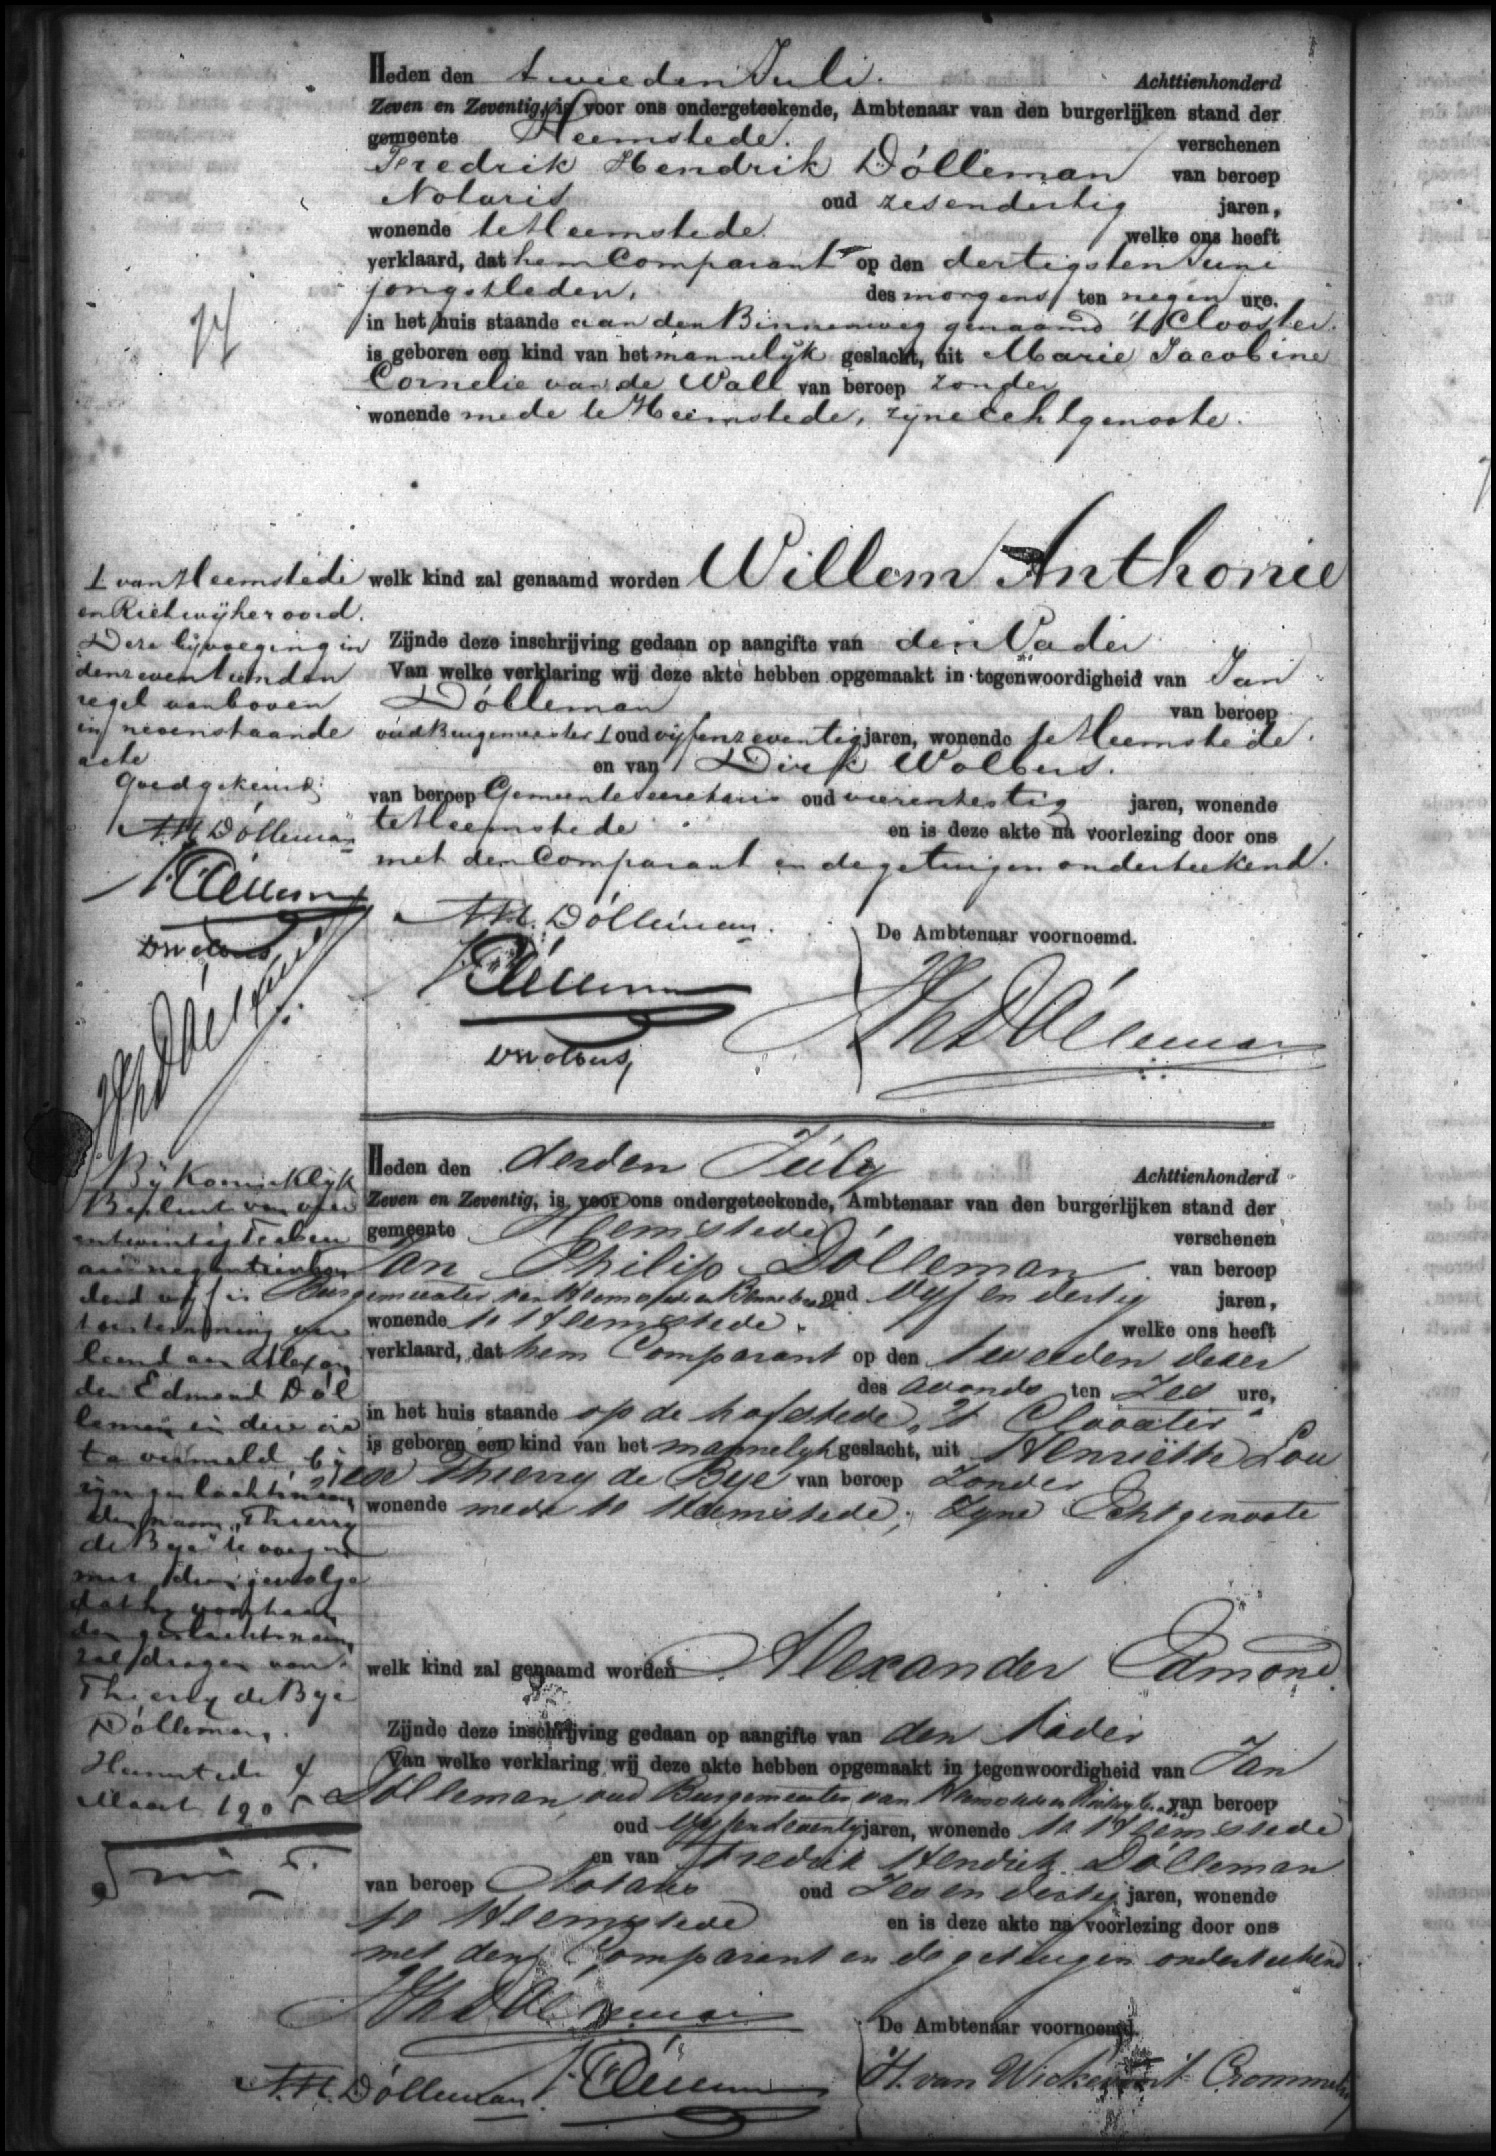 Heden den tweeden Juli. Achttienhonderd
Zeven en Zeventig, is voor ons ondergeteekende, Ambtenaar van den burgerlijken stand der
gemeente Heemstede. verschenen
Fredrik Hendrik Dólleman van beroep
Notaris oud zesendertig jaren,
wonende te Heemstede welke ons heeft
verklaard, dat hem Comparant op den dertigsten Juni
jongstleden, des morgens ten negen ure,
in het huis staande aan den Binnenweg genaamd 't Clooster.
is geboren een kind van het mannelijk geslacht, uit Marie Jacobine
Cornelie van de Wall van beroep zonder
wonende mede te Heemstede, zijne Echtgenoote.
24
welk kind zal genaamd worden Willem Anthonie
Zijnde deze inschrijving gedaan op aangifte van den Vader
Van welke verklaring wij deze akte hebben opgemaakt in tegenwoordigheid van Jan
Dólleman van beroep
oud Burgemeester ⊥ oud vijfenzeventig jaren, wonende te Heemstede.
en van Dirk Wolbers.
van beroep Gemeente Secretaris oud vierenzestig jaren, wonende
te Heemstede en is deze akte na voorlezing door ons
met den Comparant en de getuigen onderteekend.
⊥ van Heemstede
en Rietwijkeroord.
Deze bijvoeging in
den zeventienden
regel van boven
in nevenstaande
acte
goedgekeurd.
F.H. Dólleman
J Dólleman
D Wolbers
JPh Dólleman
F.H. Dólleman.
J Dólleman
D Wolbers
De Ambtenaar voornoemd.
JPh Dólleman
Heden den derden July Achttienhonderd
Zeven en Zeventig, is voor ons ondergeteekende, Ambtenaar van den burgerlijken stand der
gemeente Heemstede verschenen
Jan Philip Dólleman van beroep
Burgemeester van Heemstede en Bennebroek oud Vijf en dertig jaren,
wonende te Heemstede. welke ons heeft
verklaard, dat hem Comparant op den tweeden dezer
des avonds ten Zes ure,
in het huis staande op de hofstede „'t Clooster"
is geboren een kind van het mannelijk geslacht, uit Henriëtte Lou
ise Thierry de Bye van beroep Zonder
wonende mede te Heemstede, Zyne Echtgenoote
welk kind zal genaamd worden Alexander Edmond.
Zijnde deze inschrijving gedaan op aangifte van den Vader
Van welke verklaring wij deze akte hebben opgemaakt in tegenwoordigheid van Jan
Dolleman, oud Burgemeester van Heemstede en Rietwijkeroord van beroep
oud Vijfenzeventig jaren, wonende te Heemstede
en van Fredrik Hendrik Dólleman
van beroep Notaris oud Zes en dertig jaren, wonende
te Heemstede en is deze akte na voorlezing door ons
met den Comparant en de getuigen onderteekend
Bij Koninklijk
Besluit van vier
entwintig Februari
negentienhon
derd vijf is
toestemming ver
leend aan Alexan
der Edmond Dól
leman in deze ac
te vermeld bij
zijn geslachtsnaam
den naam „Thierry
de Bye" te voegen
met dien gevolge
dat hij voortaan
den geslachtsnaam
zal dragen van
Thierry de Bye
Dólleman.
Heemstede 4
Maart 1905
JPh Dólleman
F.H. Dólleman. J Dólleman
De Ambtenaar voornoemd.
H. van Wickevoort Crommelin